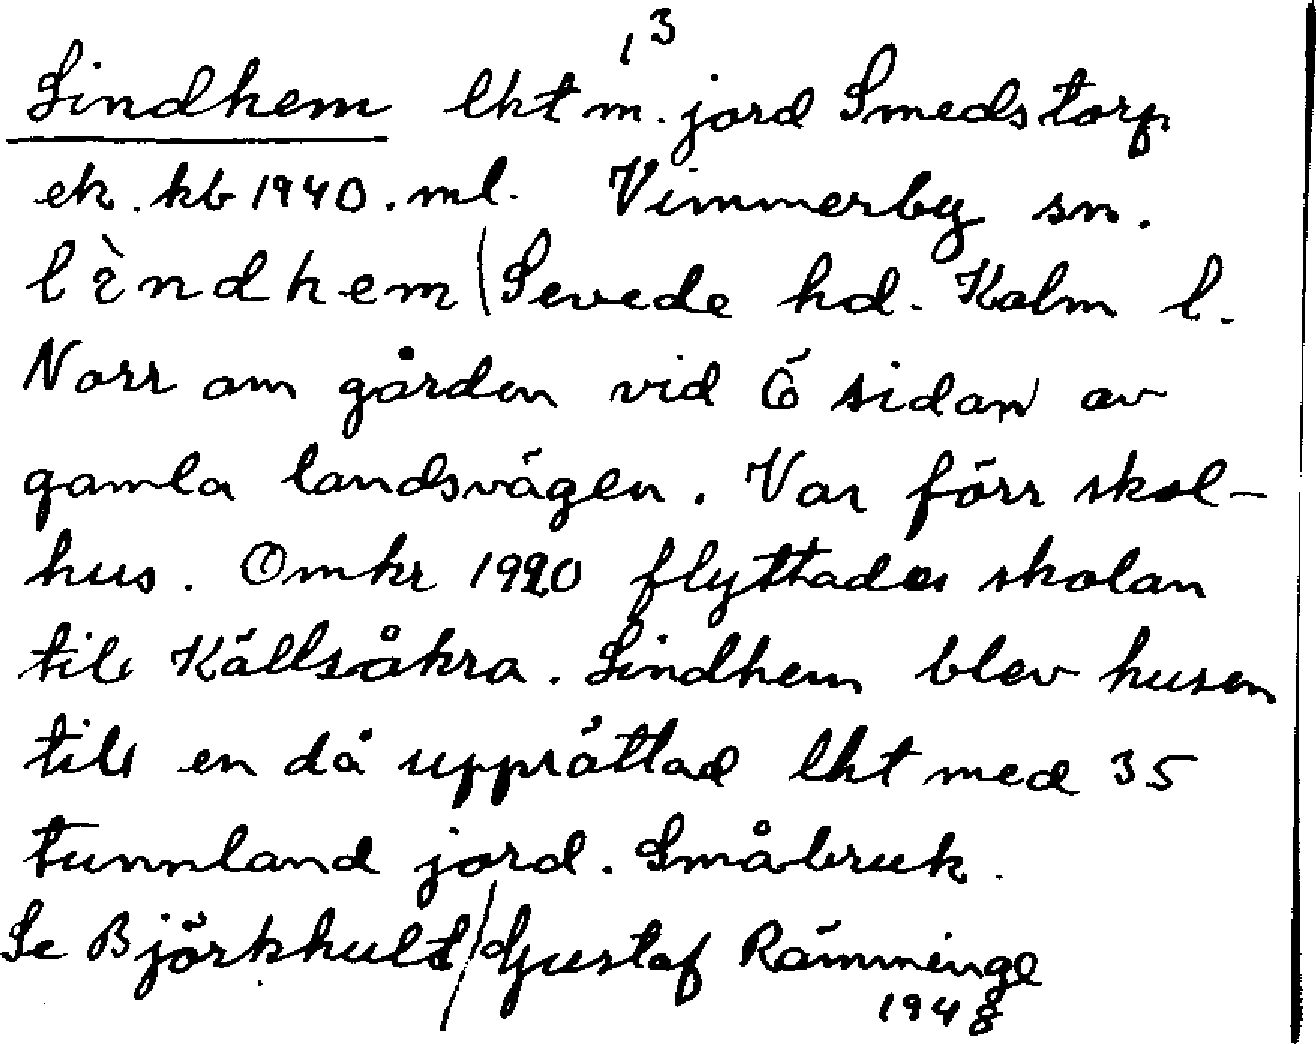 Lindhem lht m. jord Smedstorp 1³
ek. kb 1940. ml. Vimmerby sn.
lèndhem Sevede hd. Kalm l.
Norr om gården vid Ö sidan av
gamla landsvägen. Var förr skol-
hus. Omkr 1920 flyttades skolan
till Källsåkra. Lindhem blev husen
till en då upprättad lht med 35
tunnland jord. Småbruk.
Se Björkhult / Gustaf Rämminge
1948